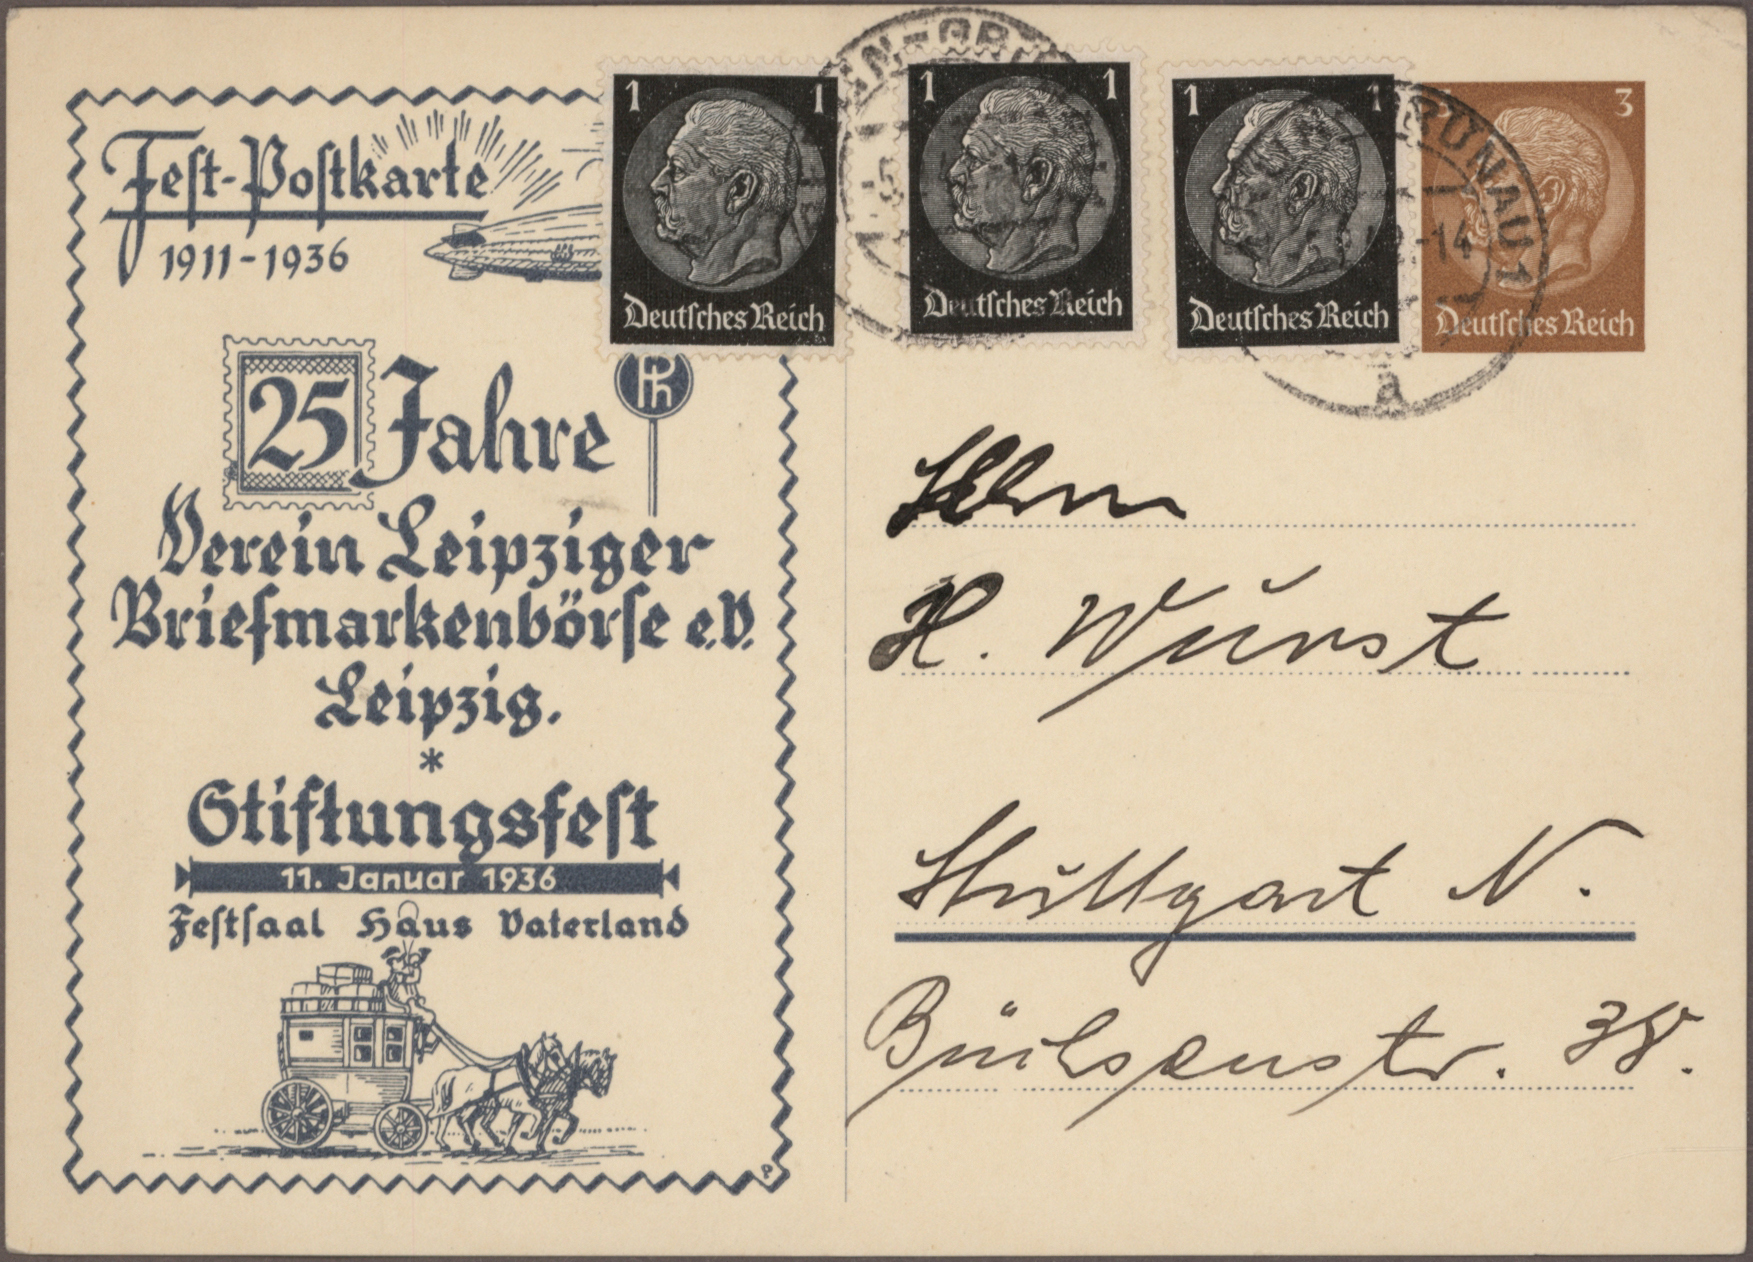 Fest-Postkarte
1911-1936
25 Jahre
Ph
Verein Leipziger
Briefmarkenbörse e.V.
Leipzig.
*
Stiftungsfest
11. Januar 1936
Festsaal Haus Vaterland
1 1
Deutsches Reich
1 1
Deutsches Reich
1 1
Deutsches Reich
3
Deutsches Reich
-14
a
Herrn
H. Wurst
Stuttgart N.
Büchsenstr.